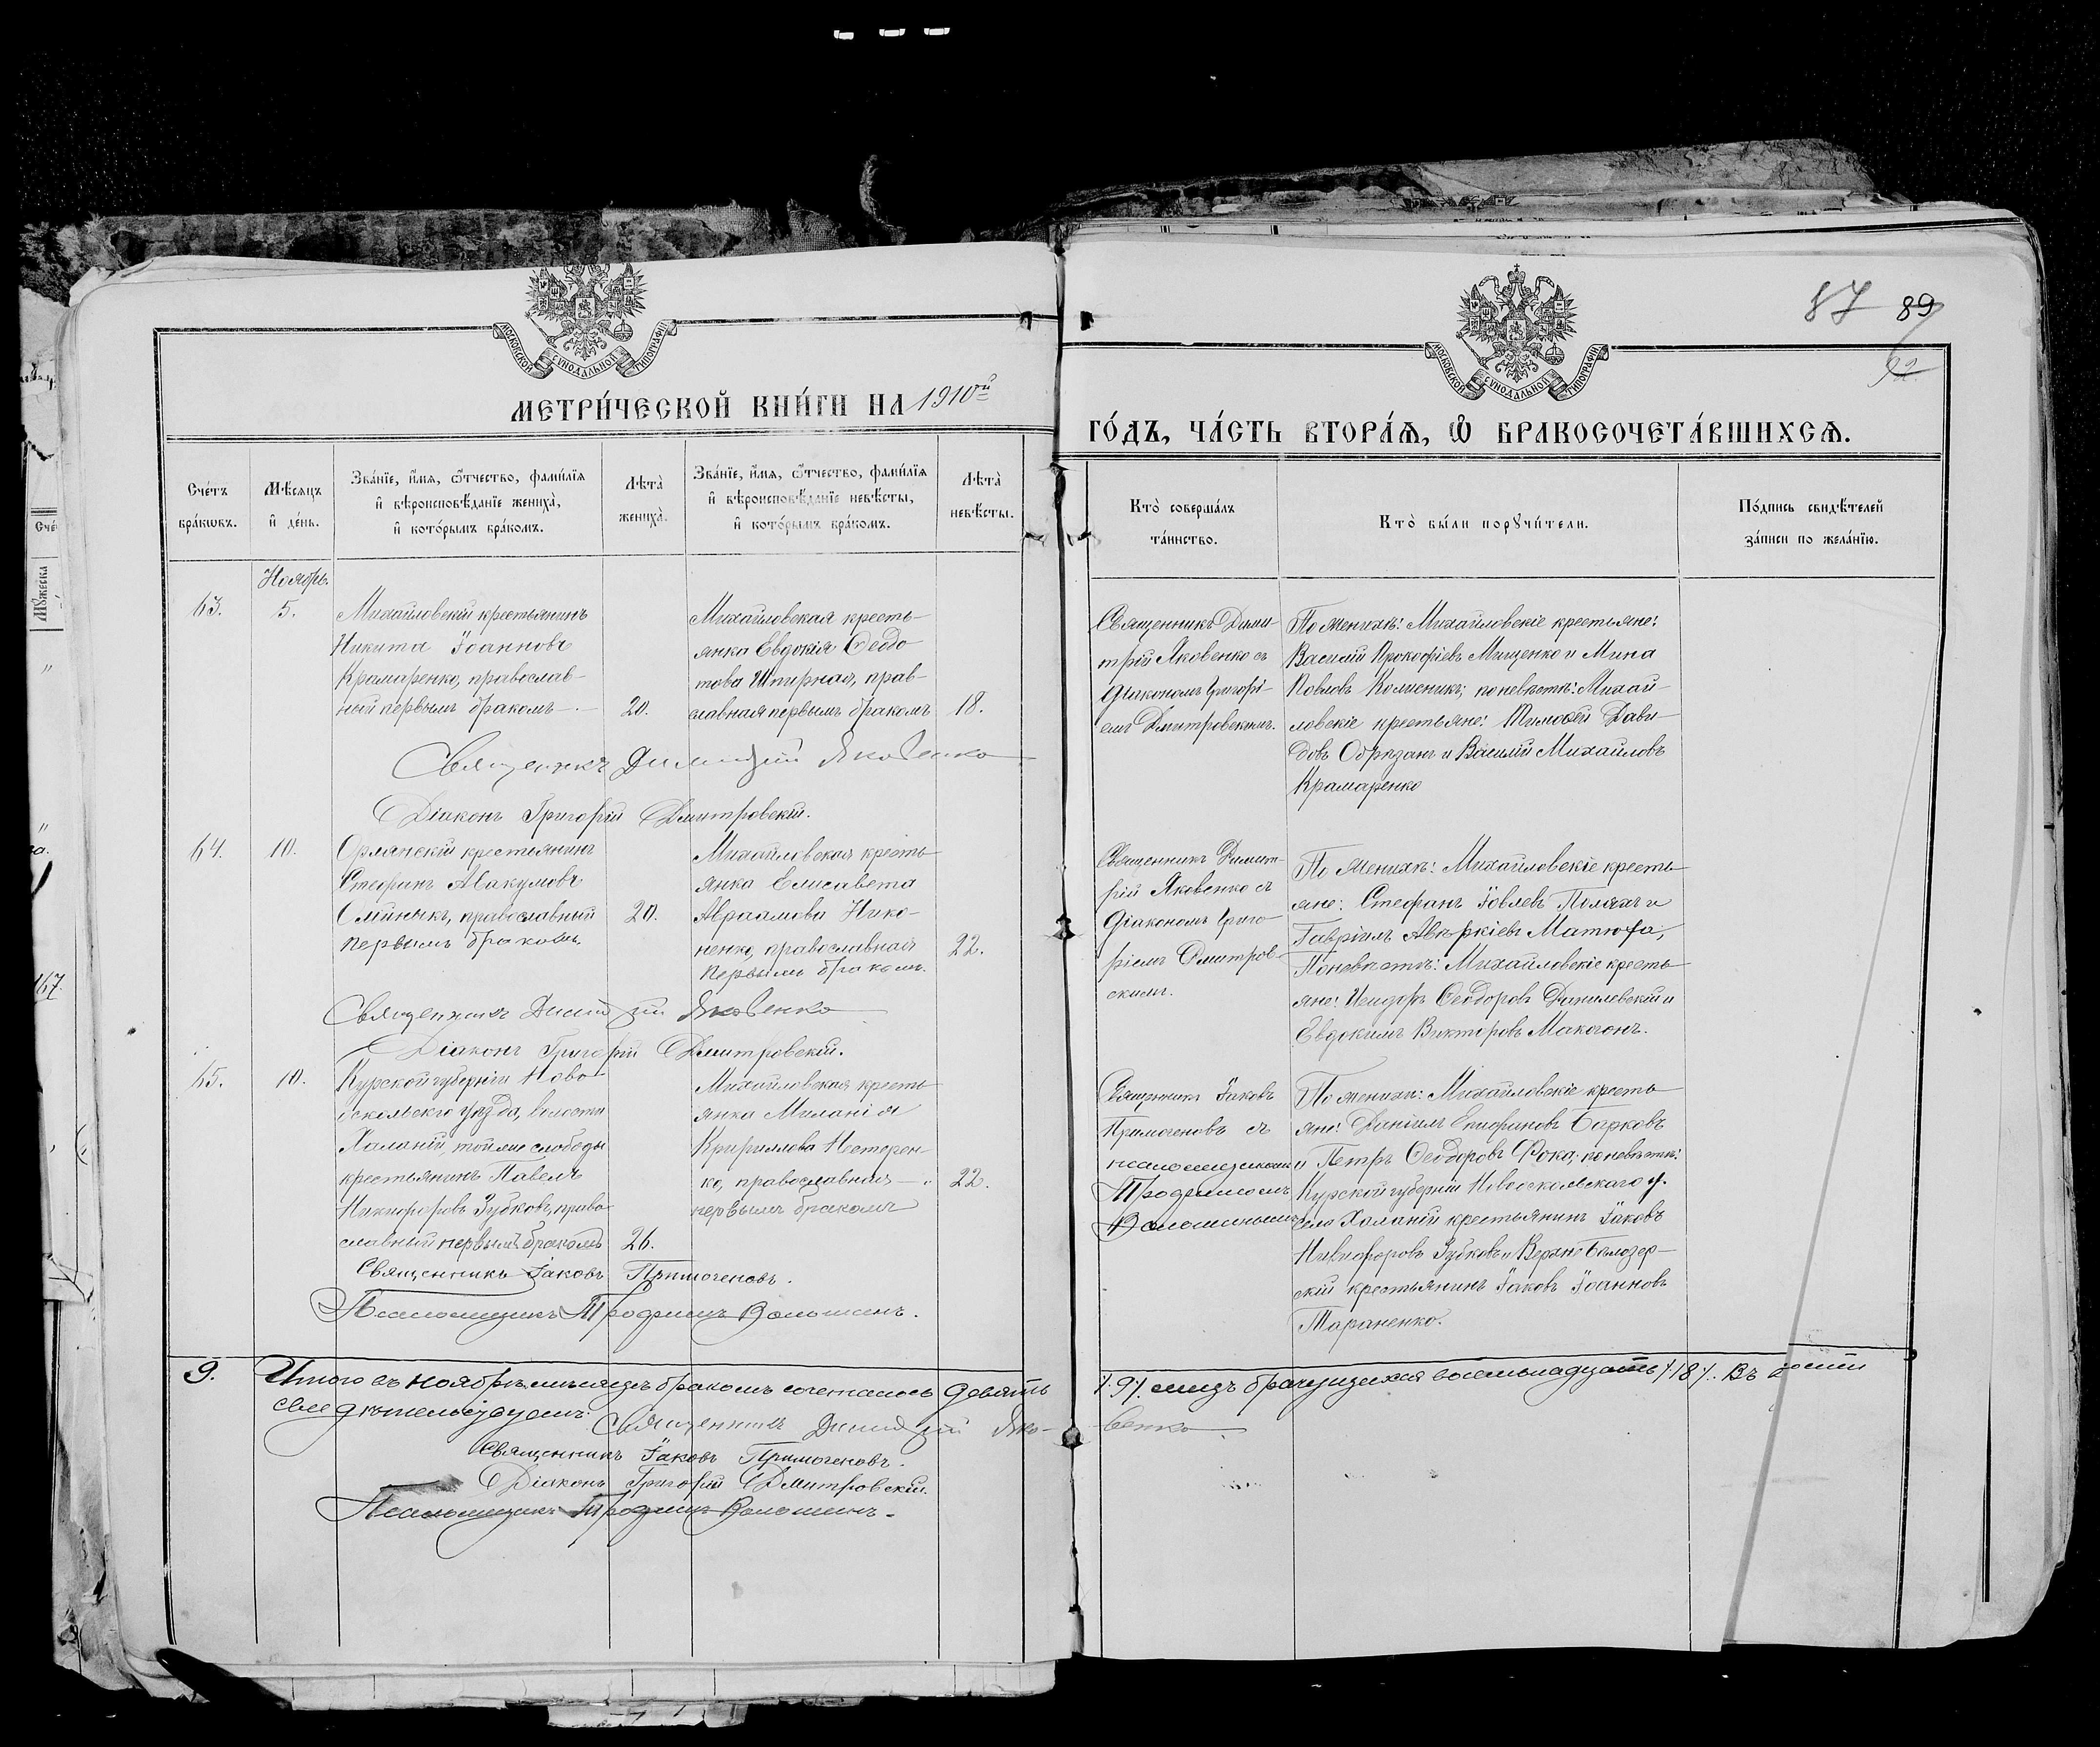 87 89
92.
МОСКОВСКОЙ СУНОДАЛЬНОЙ ТИПОГРАФІИ
МОСКОВСКОЙ СУНОДАЛЬНОЙ ТИПОГРАФІИ
МЕТРИ́ЧЕСКОЙ КНИ́ГИ НА 1910й
ГО́ДЪ, ЧА́СТЬ ВТОРА́Ѧ, Ѽ БРАКОСОЧЕТА́ВШИХСѦ.
Сче́тъ бра́кѡвъ.
Мѣ́сѧцъ и҆ де́нь.
Зва́нїе, и҆́мѧ, ѻ҆́тчество, фами́лїѧ и҆ вѣроисповѣ́данїе жениха̀, и҆ кото́рымъ бра́комъ.
Лѣта̀ жениха̀.
Зва́нїе, и҆́мѧ, ѻ҆́тчество, фами́лїѧ и҆ вѣроисповѣ́данїе невѣ́сты, и҆ кото́рымъ бра́комъ.
Лѣта̀ невѣ́сты.
Кто̀ соверша́лъ та́инство.
Кто̀ бы́ли порꙋчи́тели.
По́дпись свидѣ́телей за́писи по жела́нїю.
Ноябрь.
63.
5.
Михайловскій крестьянинъ
Никита Іоанновъ
Крамаренко, православ-
ный первымъ бракомъ.
20.
Михайловская кресть-
янка Евдокія Ѳеодо
това Шпирная, прав-
славная первымъ бракомъ
18.
Священникъ Дими
трій Яковенко съ
діакономъ Григорі-
емъ Дмитровскимъ.
По женихѣ: Михайловскіе крестьяне:
Василій Прокофіевъ Мищенко и Мина
Павловъ Колисникъ; по невѣстѣ: Михай-
ловскіе крестьяне: Тимоѳей Дави-
довъ Обризанъ и Василій Михайловъ
Крамаренко
Священникъ Димитрій Яковенко
Діаконъ Григорій Дмитровскій.
64.
10.
Орлянскій крестьянинъ
Стефанъ Авакумовъ
Олійныкъ, православный
первымъ бракомъ.
20.
Михайловская кресть
янка Елисавета
Авраамова Нико-
ненко, православная
первымъ бракомъ.
22.
Священникъ Димит-
рій Яковенко съ
діакономъ Григо-
ріемъ Дмитров-
скимъ.
По женихѣ: Михайловскіе кресть
яне: Стефанъ Іовлевъ Поляхъ и
Гавріилъ Аверкіевъ Матюфа,
По невѣстѣ: Михайловскіе кресть
яне: Исидоръ Ѳеодоровъ Данилевскій и
Евдокимъ Викторовъ Макогонъ.
Священникъ Димитрій Яковенко
Діаконъ Григорій Дмитровскій.
65.
10.
Курской губерніи Ново-
оскольскаго уѣзда, волости
Халаній, той же слободы
крестьянинъ Павелъ
Никифоровъ Зубковъ, право
славный первымъ бракомъ
26.
Михайловская кресть
янка Миланія
Кириллова Нестерен-
ко, православная
первымъ бракомъ
22.
Священникъ Іаковъ
Примогеновъ съ
псаломщикомъ
Трофимомъ
Волошинымъ
По женихѣ: Михайловскіе кресть
яне: Даніилъ Епифановъ Барковъ
и Петръ Ѳеодоровъ Фока; по невѣстѣ:
Курской губерніи Новооскольскаго у.
села Халаній крестьянинъ Іаковъ
Никифоровъ Зубковъ и Верхне-Бѣлозер-
скій крестьянинъ Іаковъ Іоанновъ
Тараненко.
Священникъ Іаковъ Примогеновъ.
Псаломщикъ Трофимъ Волошинъ.
9. Итого въ ноябрѣ мѣсяцѣ бракомъ сочеталось девять /9/. лицъ брачущихся восемьнадцать /18/. Въ семъ
свидѣтельствуемъ:
Священникъ Димитрій Яко-венко
Священникъ Іаковъ Примогеновъ.
Діаконъ Григорій Дмитровскій.
Псаломщикъ Трофимъ Волошинъ.